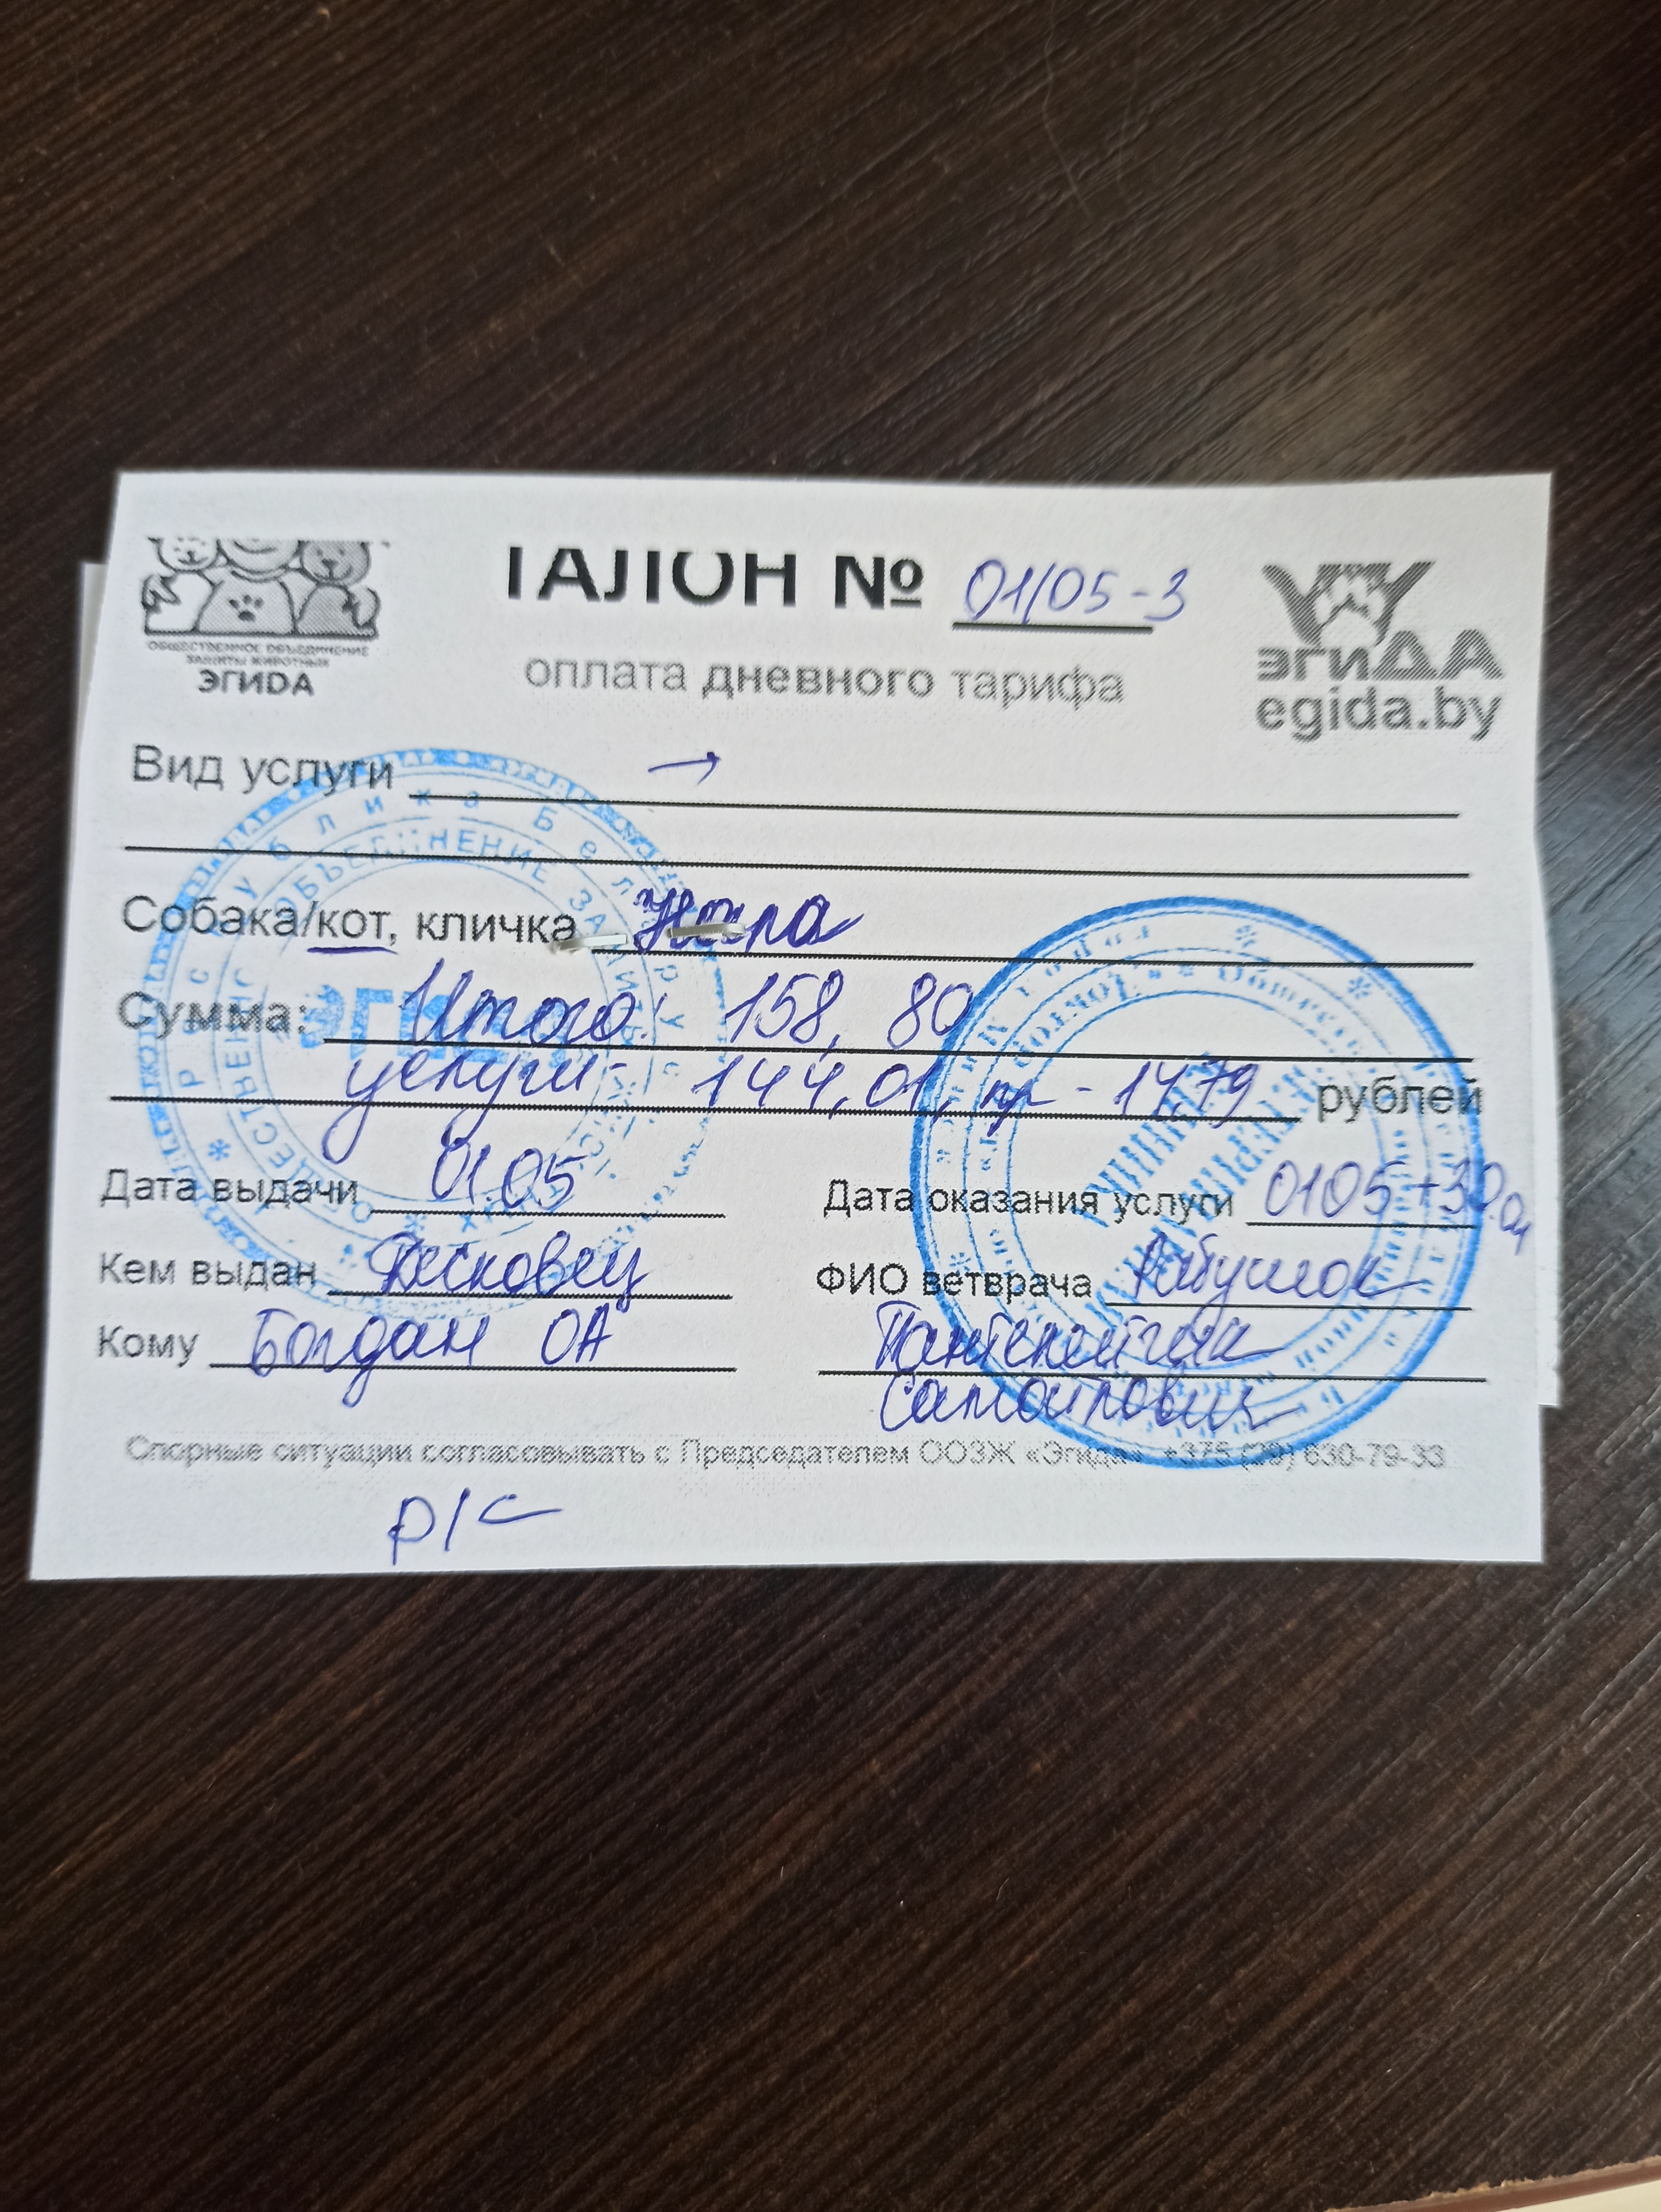 ТАЛОН № 01/05-3
оплата дневного тарифа
ОБЩЕСТВЕННОЕ ОБЪЕДИНЕНИЕ
ЗАЩИТЫ ЖИВОТНЫХ
ЭГИDA
эгиДА
egida.by
Вид услуги →
Собака/кот, кличка
Сумма: Итого: 158, 80
услуги- 144,01, пр - 14,79 рублей
Дата выдачи 01.05
Дата оказания услуги 01.05
Кем выдан
ФИО ветврача
Кому Богдан ОА
Спорные ситуации согласовывать с Председателем ООЗЖ «Эгида» +375 (29) 630-79-33
р/с